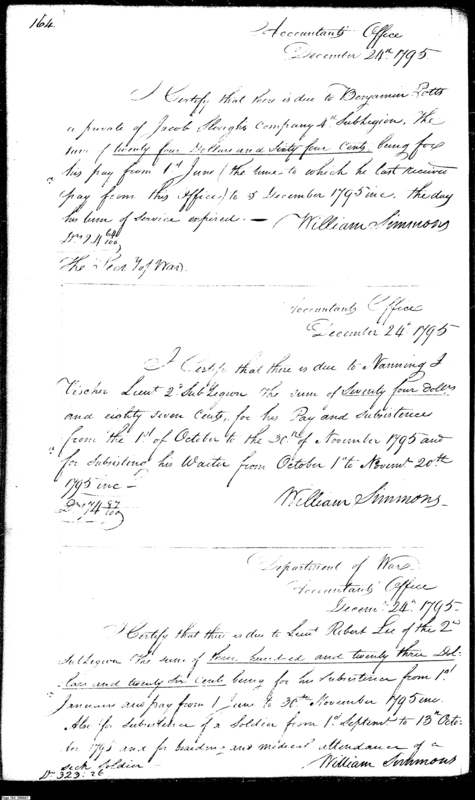 164.
Accountants Office
December 24th 1795.
I Certify that there is due to Benjamin Potts
a private of Jacob Sloughs Company 4th SubLegion. The
sum of twenty four Dollars and Sixty four Cents being for
his pay from 1st June (the time to which he last received
pay from this Office) to 5 December 1795 inc. the day
his time of Service expired. — William Simmons
Drs 24 64/100
The Secy of War.
Accountants Office
December 24th 1795
I Certify that there is due to Nanning J
Vischer Lieut 2d SubLegion The sum of Seventy four Dolls
and eighty seven Cents, for his Pay and subsistence
from the 1st of October to the 30th of November 1795 and
for subsisting his Waiter from October 1st to Novemr 20th
1795 inc —
Drs 74 87/100
William Simmons.
Department of War
Accountants Office
Decemr 24th 1795.
I Certify that there is due to Lieut Robert Lee of the 2d
SubLegion The sum of three hundred and twenty three Dol-
-lars and twenty six Cents being for his Subsistence from 1st
January and pay from 1 June to 30th November 1795 inc.
Also for subsistence of a Soldier from 1st Septemr to 13th Octo-
ber 1795 and for boarding and medical attendance of a
sick Soldier — William Simmons
Drs 323.26